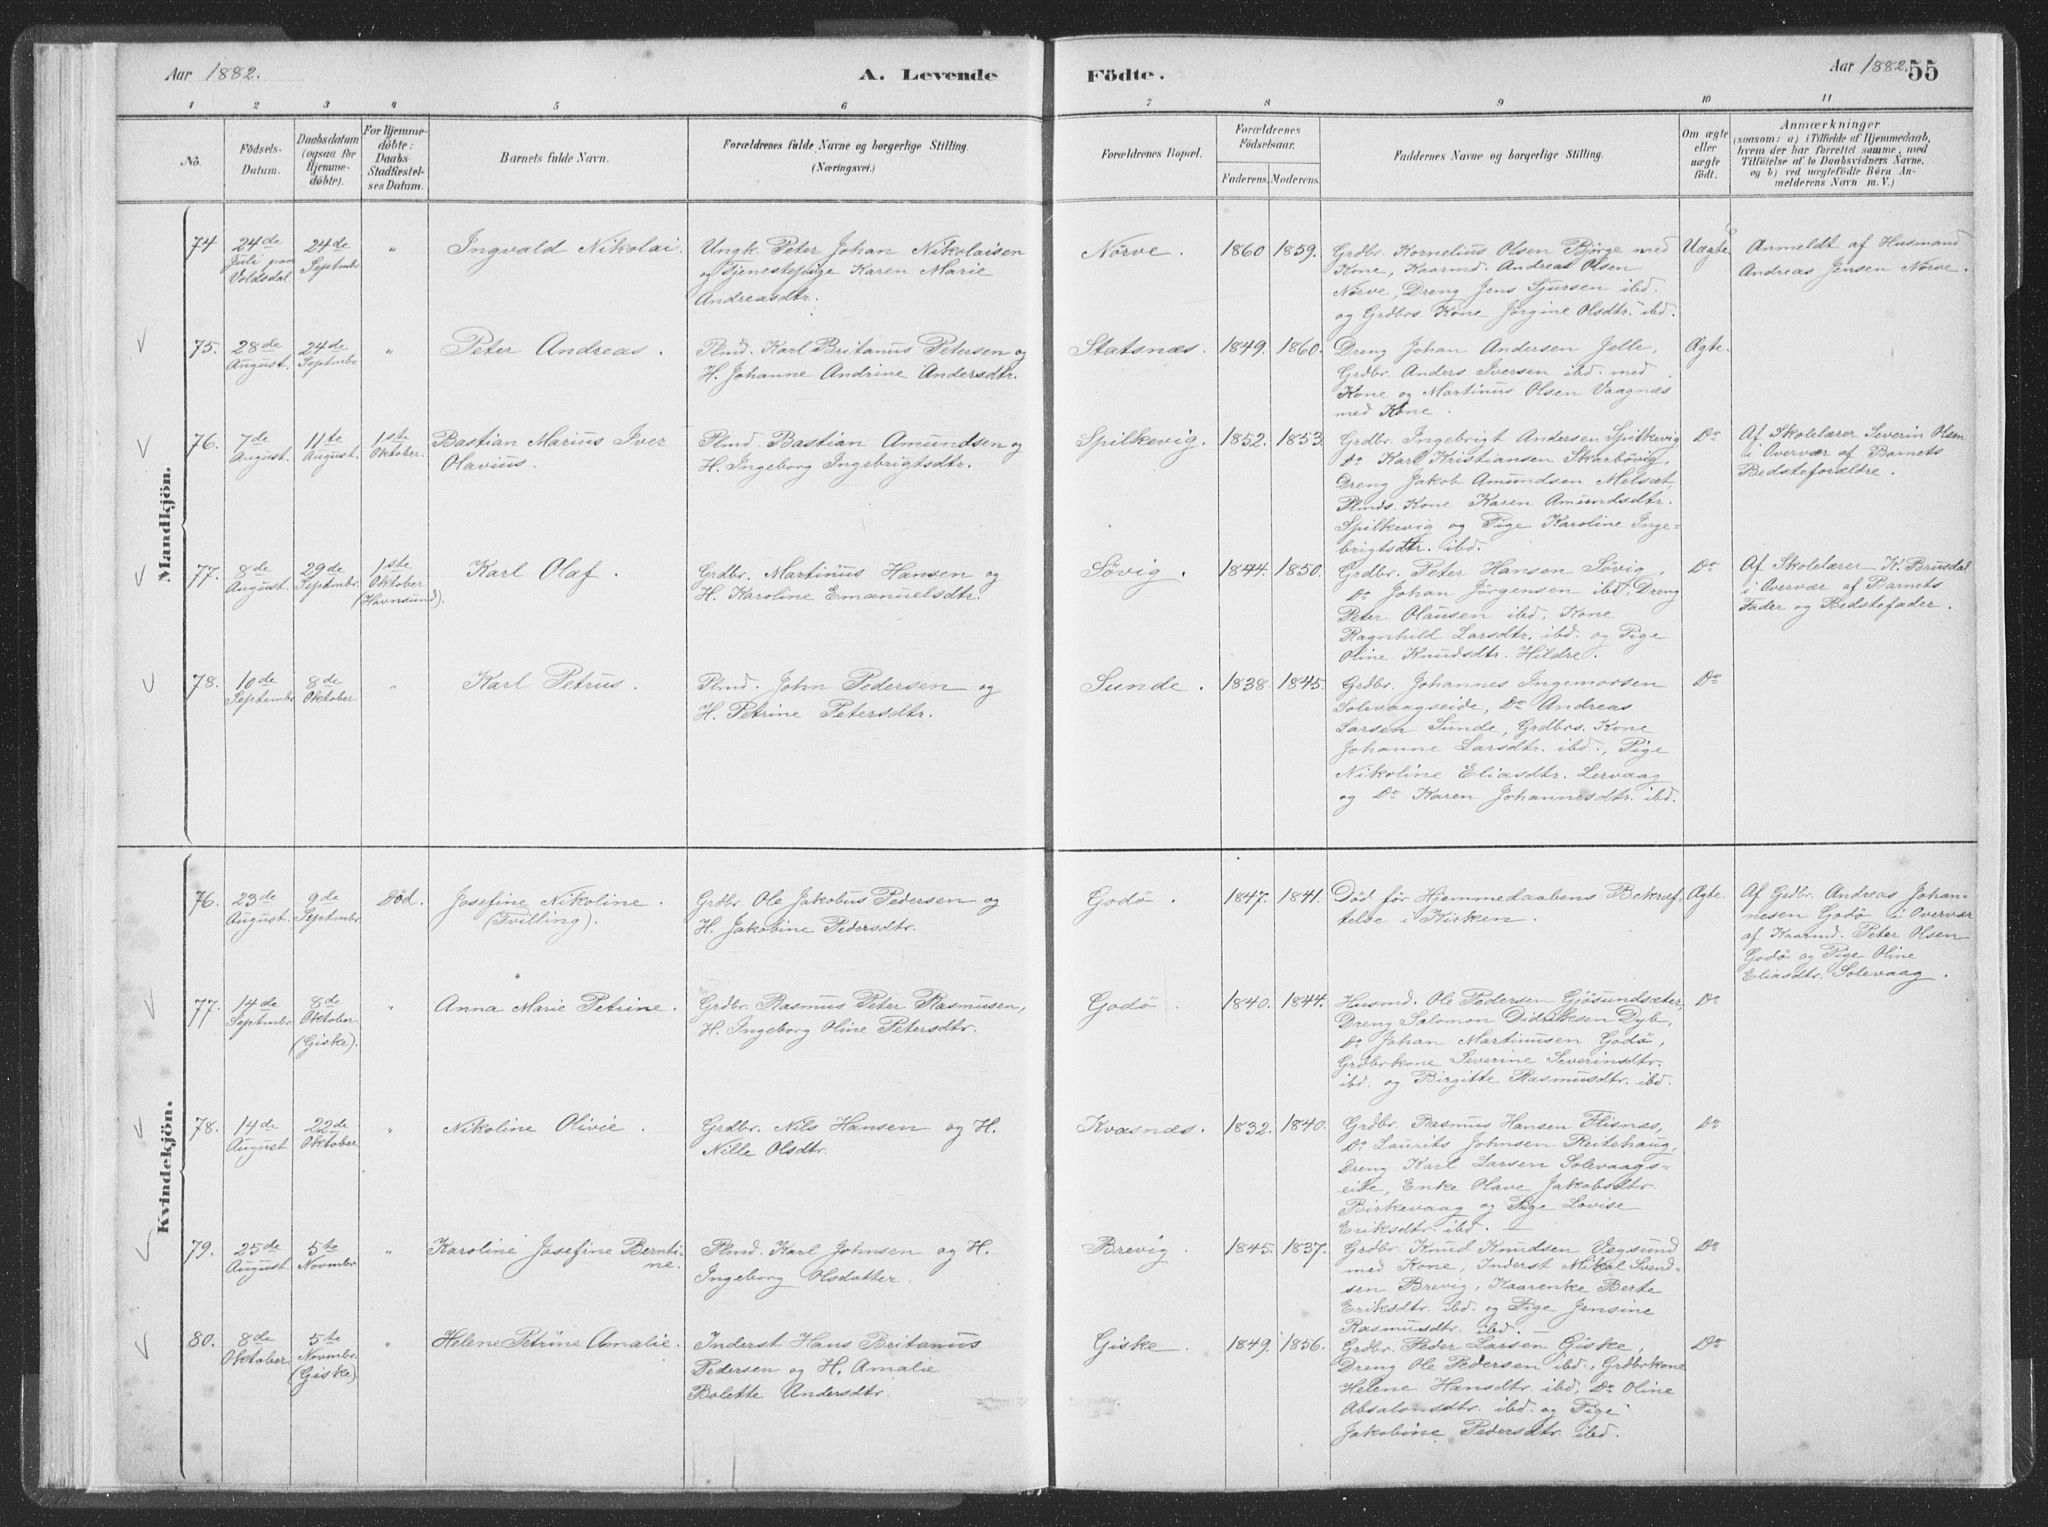 Aar 1882. A. Levende Födte. Aar 1882. 55
1 2 3 4 5 6 7 8 9 10 11
No.
Födsels-
Datum.
Daabsdatum
(ogsaa for
Hjemme-
döbte).
For Hjemme-
döbte:
Daabs-
Stadfæstel-
ses Datum.
Barnets fulde Navn.
Forældrenes fulde Navne og borgerlige Stilling.
(Næringsvei.)
Forældrenes Bopæl.
Forældrenes
Födselsaar.
Faderens. Moderens.
Faddernes Navne og borgerlige Stilling.
Om ægte
eller
uægte
födt.
Anmærkninger
(saasom: a) i Tilfælde af Hjemmedaab,
hvem der har forrettet samme, med
Tilföielse af to Daabsvidners Navne,
og b) ved uægtefödte Börn An-
melderens Navn m. V.)
Mandkjön.
74 24de
Juli paa
Voldsdal.
24de
Septmbr.
"
Ingvald Nikolai.
Ungk. Peter Johan Nikolaisen
og Tjenestepige Karen Marie
Andreasdtr.
Nörve. 1860 1859.
Grdbr. Kornelius Olsen Bjørge med
Kone, Kaarmd. Andreas Olsen
Nörve, Dreng Jens Sjursen ibd.
og Grdbrs Kone Jørgine Olsdtr. ibd.
Uægte
Anmeldt af Husmand
Andreas Jensen Nörve.
75. 28de
August.
24de
Septmbr.
"
Peter Andreas.
Plmd. Karl Britanus Petersen og
H. Johanne Andrine Andersdtr.
Statsnæs. 1849. 1860.
Dreng Johan Andersen Jelle,
Grdbr. Anders Iversen ibd. med
Kone og Martinus Olsen Vaagnæs
med Kone.
Ægte.
76. 7de
August.
11te
August.
1ste
Oktober.
Bastian Marius Iver
Olavius.
Plmd. Bastian Amundsen og
H. Ingeborg Ingebrigtsdtr.
Spilkevig. 1852. 1853.
Grdbr. Ingebrigt Andersen Spilkevig
Do Karl Kristiansen Skarbövig,
Dreng Jakob Amundsen Melsæt,
Plmds. Kone Karen Amundsdtr.
Spilkevig og Pige Karoline Inge-
brigtsdtr. ibd.
Do
Af Skolelærer Severin Olsen
i Overvær af Barnets
Bedsteforældre.
77. 8de
August.
29de
Septmbr.
1ste
Oktober
(Havnsund).
Karl Olaf.
Grdbr. Martinus Hansen og
H. Karoline Emanuelsdtr.
Sövig. 1844. 1850.
Grdbr. Peter Hansen Sövig,
Do Johan Jörgensen ibd, Dreng
Peter Olausen ibd, Kone
Ragnhild Larsdtr. ibd. og Pige
Oline Knudsdtr. Hildre.
Do
Af Skolelærer K. Brusdal
i Overvær af Barnets
Fader og Bedstefader.
78. 10de
Septmbr.
8de
Oktober
"
Karl Petrus.
Plmd. John Pedersen og
H. Petrine Petersdtr.
Sunde. 1838. 1845.
Grdbr. Johannes Ingemorsen
Solevaagseide, Do Andreas
Larsen Sunde, Grdbrs. Kone
Johanne Larsdtr. ibd., Pige
Nikoline Eliasdtr. Lervaag
og Do Karen Johannesdtr. ibd.
Do
Kvindekjön.
76. 23de
August.
9de
Septmbr.
Död.
Josefine Nikoline.
(Tvilling).
Grdbr. Ole Jakobus Pedersen og
H. Jakobine Pedersdtr.
Godö. 1847. 1841.
Död för Hjemmedaabens Bekræf-
telse i Kirken.
Ægte.
Af Grdbr. Andreas Johan-
nesen Godö i Overvær
af Kaarmd. Peter Olsen
Godö og Pige Oline
Eliasdtr. Solevaag.
77. 14de
Septmbr.
8de
Oktober
(Giske).
"
Anna Marie Petrine.
Grdbr. Rasmus Peter Rasmusen,
H. Ingeborg Oline Petersdtr.
Godö. 1840. 1844.
Husmd. Ole Pedersen Gjösundsæter,
Dreng Salomon Didriksen Dyb,
Do Johan Martinusen Godö,
Grdbrkone Severine Severinsdtr.
ibd. og Birgitte Rasmusdtr. ibd.
Do
78. 14de
August.
22de
Oktober
"
Nikoline Olivie.
Grdbr. Nils Hansen og H.
Nille Olsdtr.
Kvasnæs. 1832. 1840.
Grdbr. Rasmus Hansen Flisnæs,
Do Laurits Johnsen Reitehaug,
Dreng Karl Larsen Solevaags-
eide, Enke Olave Jakobsdtr.
Birkevaag og Pige Lovise
Eriksdtr. ibd.
Do
79. 25de
August.
5te
Novmbr.
"
Karoline Josefine Bernti-
ne.
Plmd. Karl Johnsen og H.
Ingeborg Olsdatter.
Brevig. 1845. 1837.
Grdbr. Knud Knudsen Vegsund
med Kone, Inderst Mikal Svend-
sen Brevig, Kaarenke Berte
Eriksdtr. ibd. og Pige Jensine
Rasmusdtr. ibd.
Do
80. 8de
Oktober.
5te
Novmbr.
(Giske)
"
Helene Petrine Amalie.
Inderst Hans Britanus
Pedersen og H. Amalie
Bolette Andersdtr.
Giske. 1849. 1856.
Grdbr. Peder Larsen Giske,
Dreng Ole Pedersen ibd., Grdbrkone
Helene Hansdtr. ibd, Do Oline
Absalonsdtr. ibd. og Pige
Jakobine Pedersdtr. ibd.
Do